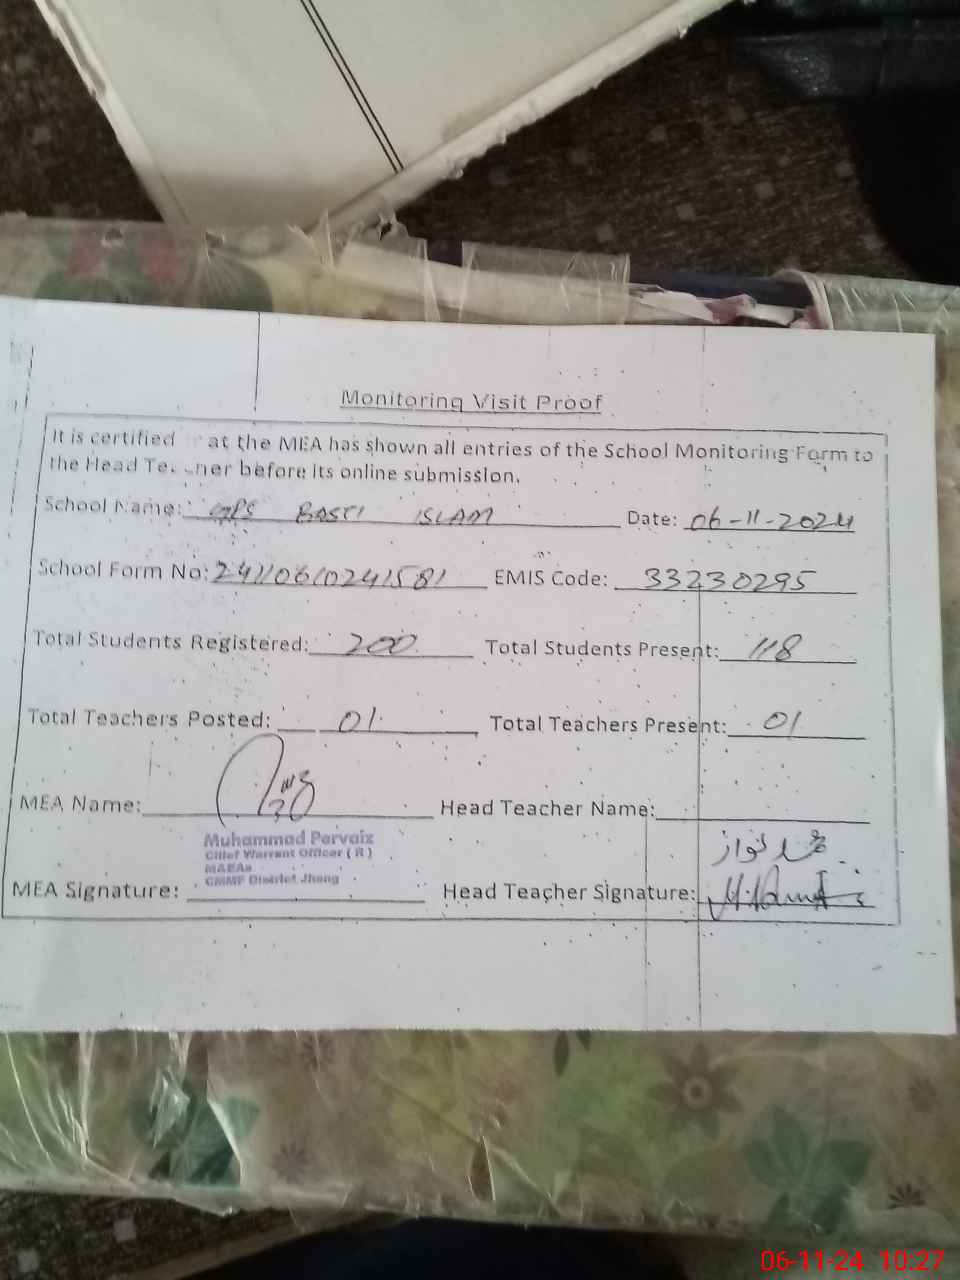 Monitoring Visit Proof
It is certified at the MEA has shown all entries of the School Monitoring Form to
the Head Te cher before its online submission.
School Name: GPS BASTI ISLAM Date: 06-11-2024
School Form No: 24110610241581 EMIS Code: 33230295
Total Students Registered: 200 Total Students Present: 118
Total Teachers Posted: 01 Total Teachers Present: 01
MEA Name: Head Teacher Name:
Muhammad Pervaiz
Chief Warrant Officer ( R )
MAEAs
CMMF District Jhang
محمد نواز
MEA Signature: Head Teacher Signature:
06-11-24 10:27